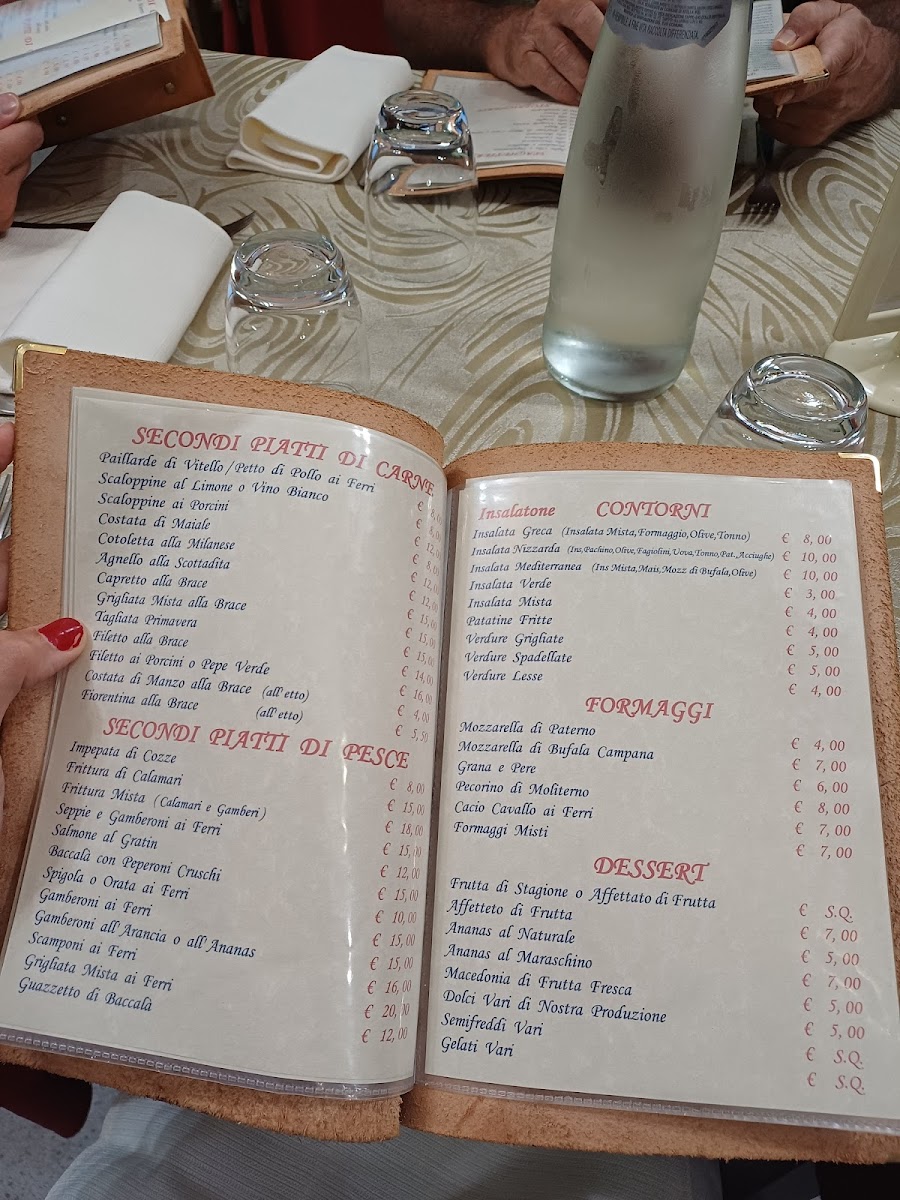 RACCOLTA DIFFERENZIATA
SECONDI PIATTI DI CARNE
Paillarde di Vitello/Petto di Pollo ai Ferri € 8,00
Scaloppine al Limone o Vino Bianco € 8,00
Scaloppine ai Porcini € 12,00
Costata di Maiale € 8,00
Cotoletta alla Milanese € 12,00
Agnello alla Scottadita € 12,00
Capretto alla Brace € 15,00
Grigliata Mista alla Brace € 15,00
Tagliata Primavera € 15,00
Filetto alla Brace € 14,00
Filetto ai Porcini o Pepe Verde € 16,00
Costata di Manzo alla Brace (all'etto) € 4,00
Fiorentina alla Brace (all'etto) € 5,50
SECONDI PIATTI DI PESCE
Impepata di Cozze € 8,00
Frittura di Calamari € 15,00
Frittura Mista (Calamari e Gamberi) € 18,00
Seppie e Gamberoni ai Ferri € 15,00
Salmone al Gratin € 12,00
Baccalà con Peperoni Cruschi € 15,00
Spigola o Orata ai Ferri € 10,00
Gamberoni ai Ferri € 15,00
Gamberoni all'Arancia o all'Ananas € 15,00
Scamponi ai Ferri € 16,00
Grigliata Mista ai Ferri € 20,00
Guazzetto di Baccalà € 12,00
Insalatone CONTORNI
Insalata Greca (Insalata Mista,Formaggio,Olive,Tonno) € 8,00
Insalata Nizzarda (Ins,Pachino,Olive,Fagiolini,Uova,Tonno,Pat.,Acciughe) € 10,00
Insalata Mediterranea (Ins Mista,Mais,Mozz di Bufala,Olive) € 10,00
Insalata Verde € 3,00
Insalata Mista € 4,00
Patatine Fritte € 4,00
Verdure Grigliate € 5,00
Verdure Spadellate € 5,00
Verdure Lesse € 4,00
FORMAGGI
Mozzarella di Paterno € 4,00
Mozzarella di Bufala Campana € 7,00
Grana e Pere € 6,00
Pecorino di Moliterno € 8,00
Cacio Cavallo ai Ferri € 7,00
Formaggi Misti € 7,00
DESSERT
Frutta di Stagione o Affettato di Frutta € S.Q.
Affetteto di Frutta € 7,00
Ananas al Naturale € 5,00
Ananas al Maraschino € 7,00
Macedonia di Frutta Fresca € 5,00
Dolci Vari di Nostra Produzione € 5,00
Semifreddi Vari € S.Q.
Gelati Vari € S.Q.